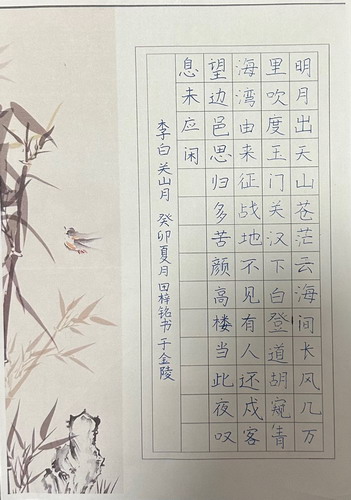 明月出天山苍茫云海间长风几万
里吹度玉门关汉下白登道胡窥青
海湾由来征战地不见有人还戍客
望边邑思归多苦颜高楼当此夜叹
息未应闲
李白关山月 癸卯夏月田梓铭书于金陵